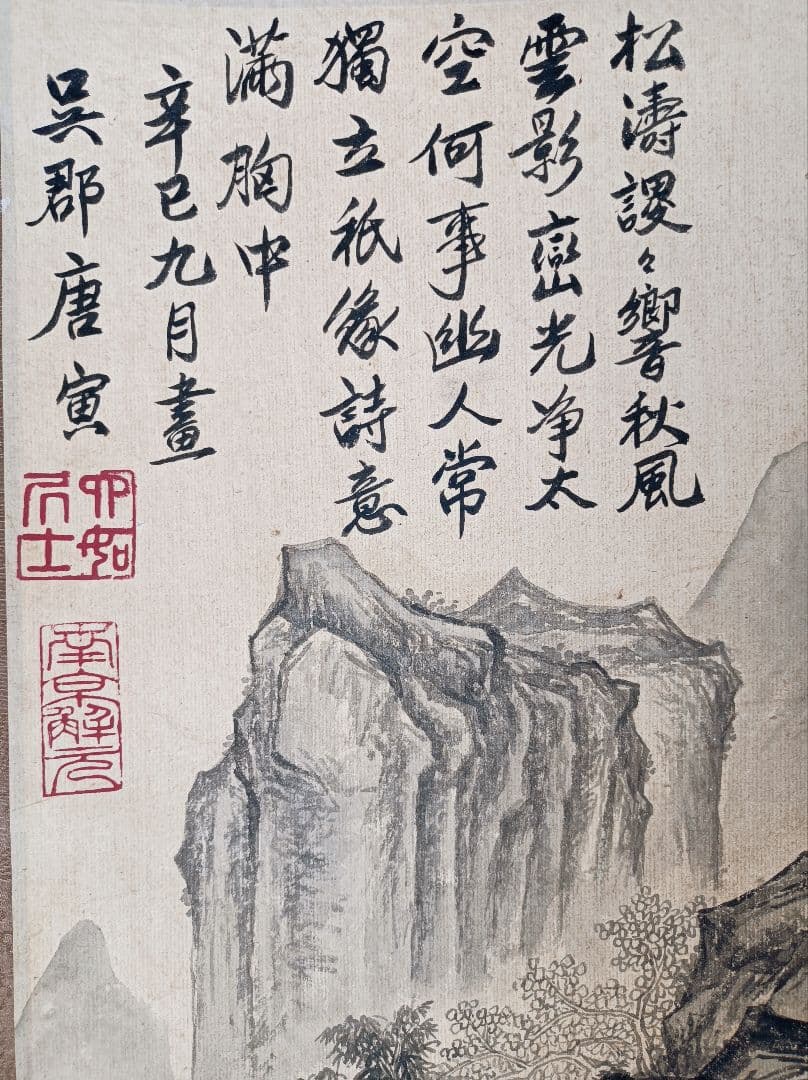 松濤謖々響秋風
雲影巒光净太
空何事幽人常
獨立衹緣詩意
滿胸中
辛巳九月畫
吳郡唐寅
六如居士
南京解元